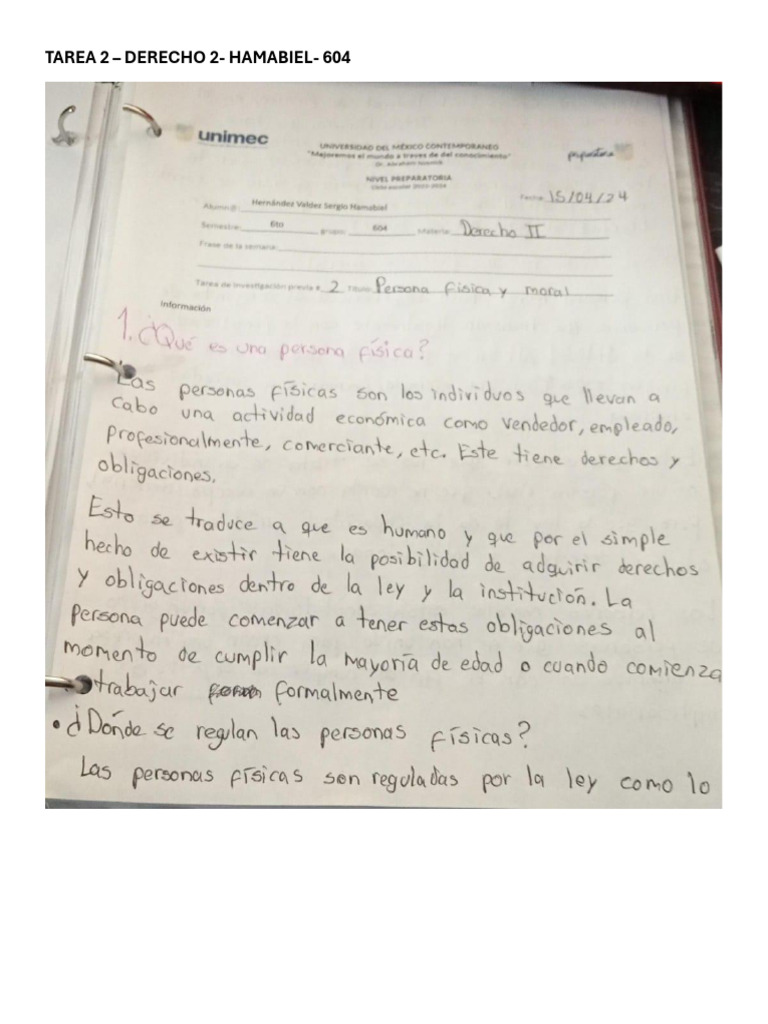 TAREA 2 – DERECHO 2- HAMABIEL- 604
unimec
UNIVERSIDAD DEL MÉXICO CONTEMPORANEO
"Mejoremos el mundo a traves de del conocimiento"
preparatoria
NIVEL PREPARATORIA
Ciclo escolar 2023-2024
Fecha: 15/04/24
Alumn@: Hernández Valdez Sergio Hamabiel
Semestre: 6to grupo: 604 Materia: Derecho II
Frase de la semana:
Tarea de investigación previa #. 2 Título: Persona física y moral
Información
1. ¿Qué es una persona física?
Las personas físicas son los individuos que llevan a
cabo una actividad económica como vendedor, empleado,
profesionalmente, comerciante, etc. Este tiene derechos y
obligaciones.
Esto se traduce a que es humano y que por el simple
hecho de existir tiene la posibilidad de adquirir derechos
y obligaciones dentro de la ley y la institución. La
persona puede comenzar a tener estas obligaciones al
momento de cumplir la mayoría de edad o cuando comienza
trabajar formalmente
• ¿Dónde se regulan las personas físicas?
Las personas físicas son reguladas por la ley como lo